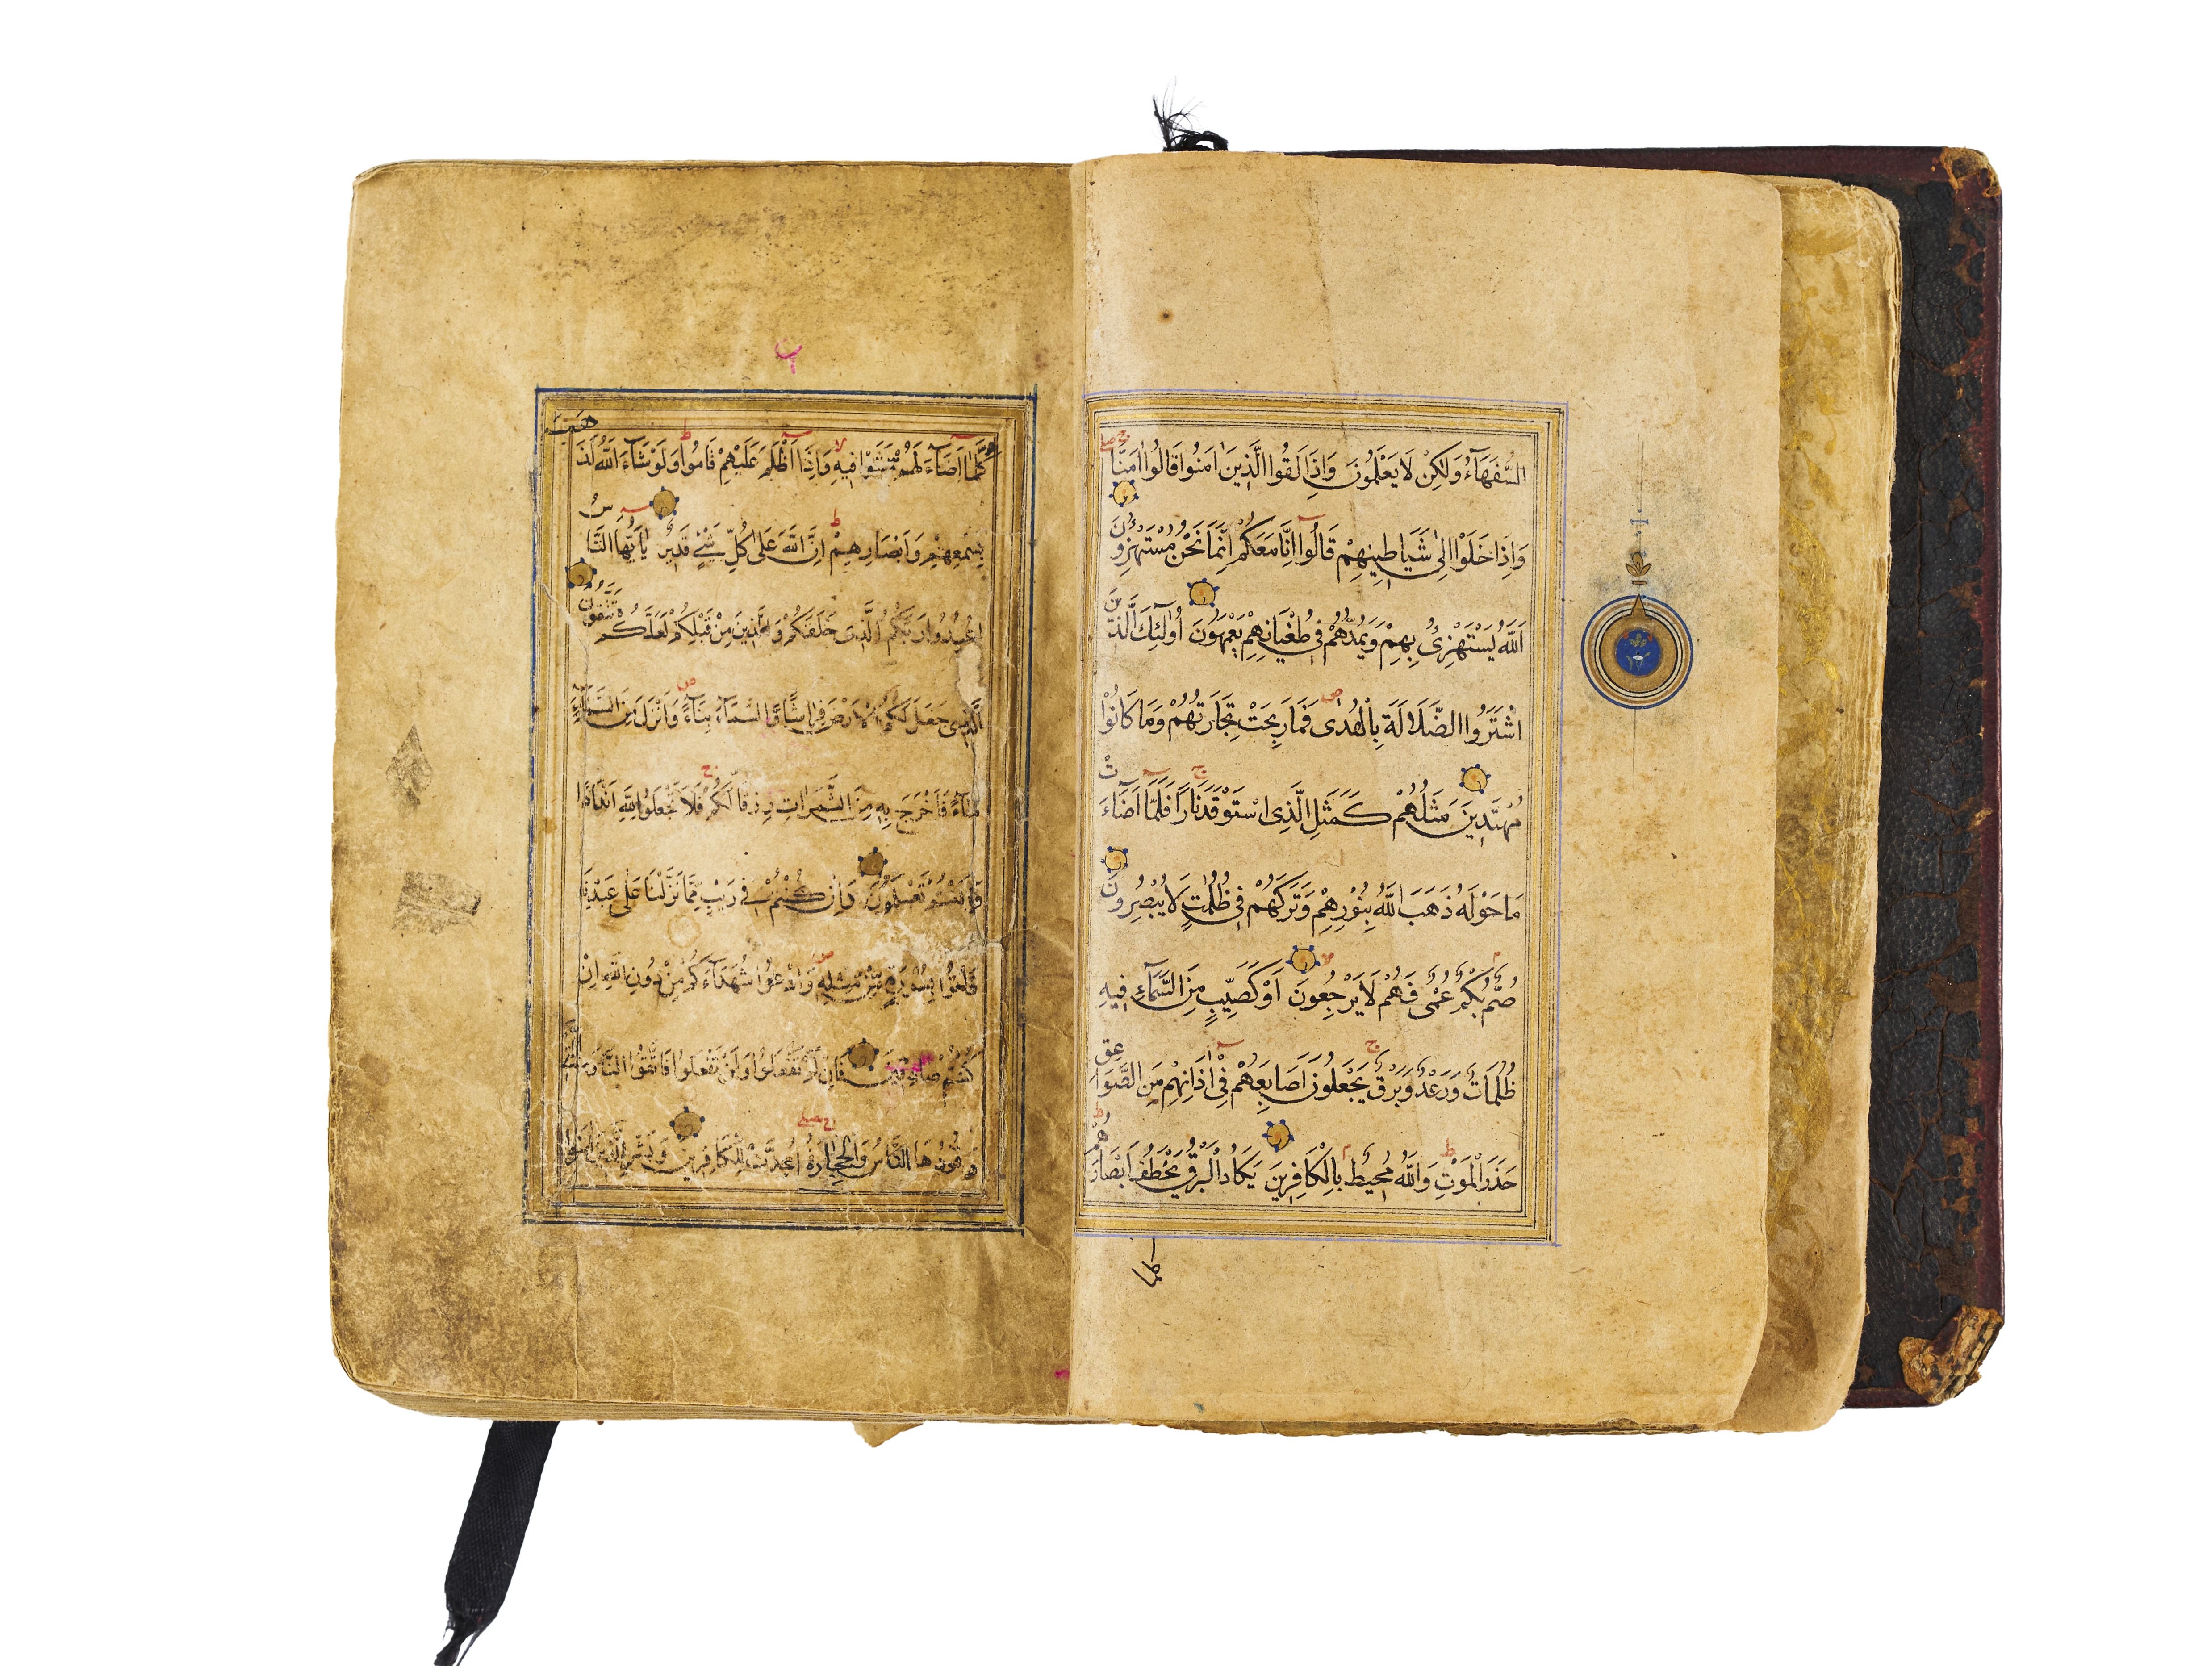 السُّفَهَآءُ وَلٰكِنْ لَا يَعْلَمُونَ وَاِذَا لَقُوا الَّذِينَ اٰمَنُوا قَالُوا اٰمَنَّا
وَاِذَا خَلَوْا اِلٰى شَيَاطِينِهِمْ قَالُوا اِنَّا مَعَكُمْ اِنَّمَا نَحْنُ مُسْتَهْزِؤُنَ
اَللّٰهُ يَسْتَهْزِئُ بِهِمْ وَيَمُدُّهُمْ فِى طُغْيَانِهِمْ يَعْمَهُونَ اُولٰئِكَ الَّذِينَ
اشْتَرَوُا الضَّلَالَةَ بِالْهُدٰى فَمَا رَبِحَتْ تِجَارَتُهُمْ وَمَا كَانُوْا
مُهْتَدِينَ مَثَلُهُمْ كَمَثَلِ الَّذِى اسْتَوْقَدَ نَارًا فَلَمَّا اَضَآءَتْ
مَا حَوْلَهُ ذَهَبَ اللّٰهُ بِنُوْرِهِمْ وَتَرَكَهُمْ فِى ظُلُمٰتٍ لَا يُبْصِرُونَ
صُمٌّ بُكْمٌ عُمْىٌ فَهُمْ لَا يَرْجِعُونَ اَوْ كَصَيِّبٍ مِنَ السَّمَآءِ فِيهِ
ظُلُمَاتٌ وَرَعْدٌ وَبَرْقٌ يَجْعَلُونَ اَصَابِعَهُمْ فِى اٰذَانِهِمْ مِنَ الصَّوَاعِقِ
حَذَرَ الْمَوْتِ وَاللّٰهُ مُحِيطٌ بِالْكَافِرِينَ يَكَادُ الْبَرْقُ يَخْطَفُ اَبْصَارَهُمْ
كلما
كُلَّمَا اَضَآءَ لَهُمْ مَشَوْا فِيهِ وَاِذَا اَظْلَمَ عَلَيْهِمْ قَامُوا وَلَوْ شَآءَ اللّٰهُ لَذَهَبَ
بِسَمْعِهِمْ وَاَبْصَارِهِمْ اِنَّ اللّٰهَ عَلٰى كُلِّ شَىْءٍ قَدِيرٌ يَااَيُّهَا النَّاسُ
اعْبُدُوا رَبَّكُمُ الَّذِى خَلَقَكُمْ وَالَّذِينَ مِنْ قَبْلِكُمْ لَعَلَّكُمْ تَتَّقُونَ
الَّذِى جَعَلَ لَكُمُ الْاَرْضَ فِرَاشًا وَالسَّمَآءَ بِنَآءً وَاَنْزَلَ مِنَ السَّمَآءِ
مَآءً فَاَخْرَجَ بِهِ مِنَ الثَّمَرَاتِ رِزْقًا لَكُمْ فَلَا تَجْعَلُوا لِلّٰهِ اَنْدَادًا
وَاَنْتُمْ تَعْلَمُونَ وَاِنْ كُنْتُمْ فِى رَيْبٍ مِمَّا نَزَّلْنَا عَلٰى عَبْدِنَا
فَأْتُوْا بِسُوْرَةٍ مِنْ مِثْلِهِ وَادْعُوا شُهَدَآءَكُمْ مِنْ دُونِ اللّٰهِ اِنْ
كُنْتُمْ صَادِقِينَ فَاِنْ لَمْ تَفْعَلُوا وَلَنْ تَفْعَلُوا فَاتَّقُوا النَّارَ الَّتِى
وَقُودُهَا النَّاسُ وَالْحِجَارَةُ اُعِدَّتْ لِلْكَافِرِينَ وَبَشِّرِ الَّذِينَ اٰمَنُوا